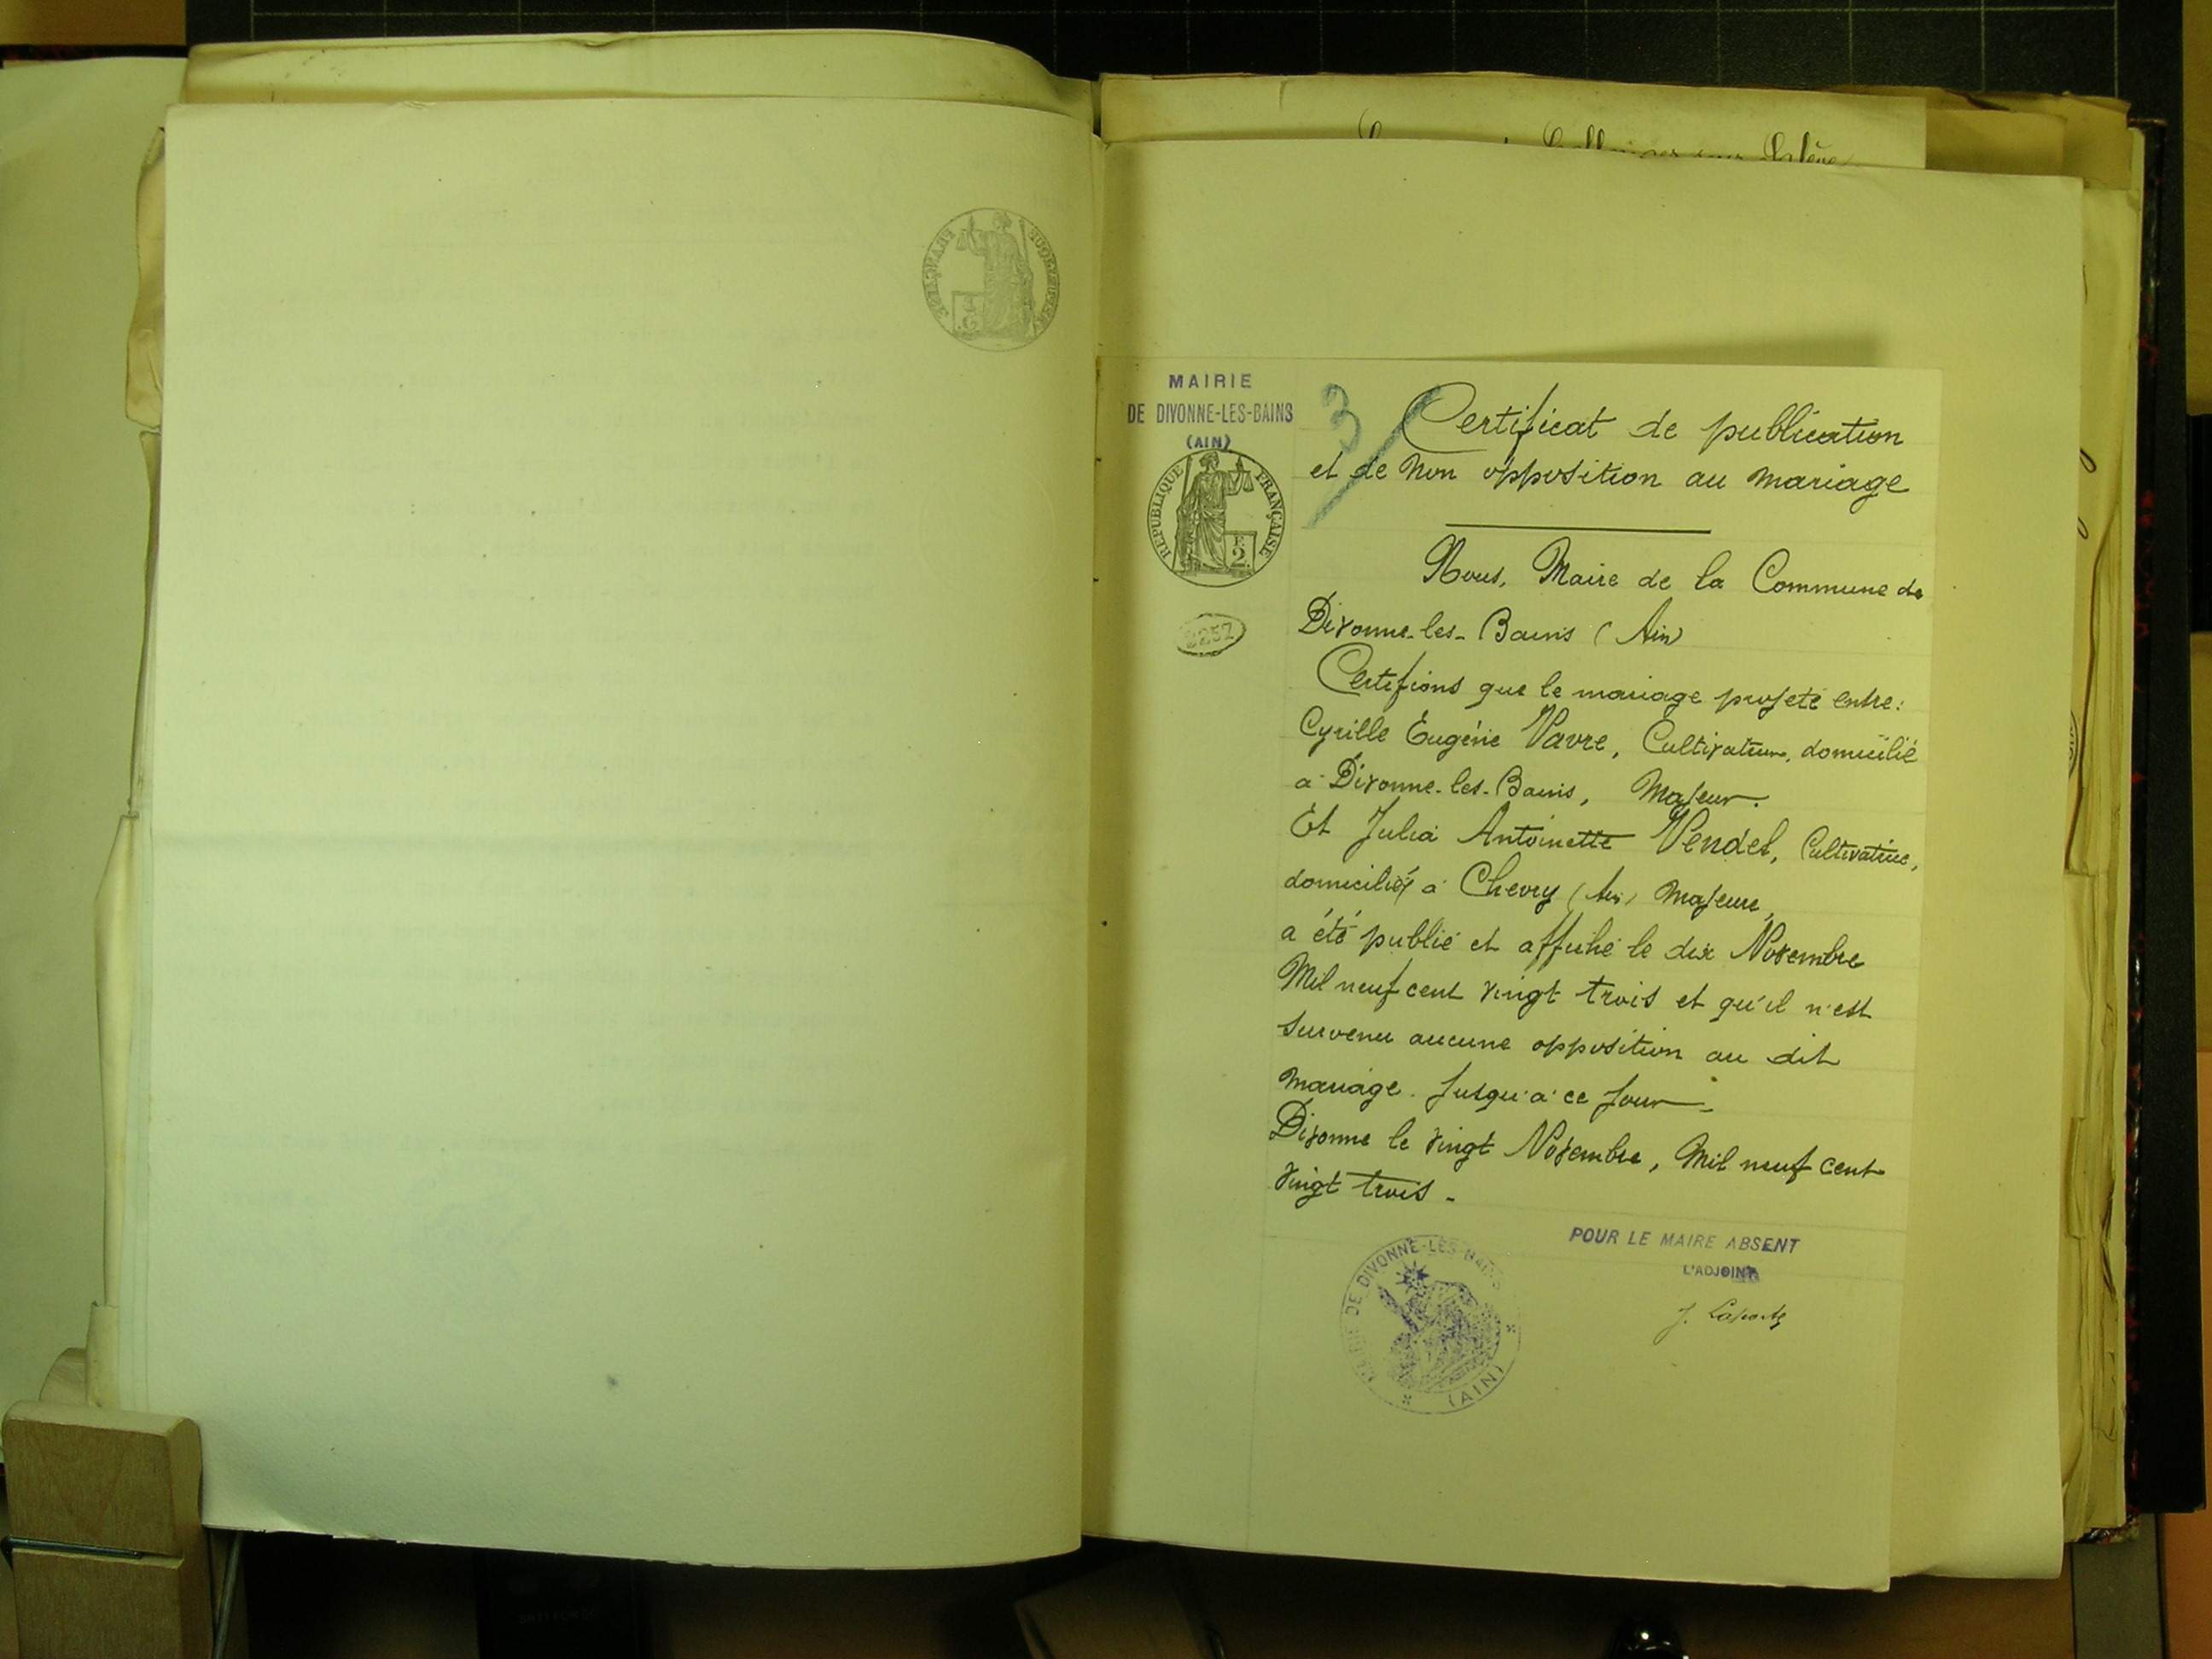 MAIRIE
DE DIVONNE-LES-BAINS
(AIN)
RÉPUBLIQUE FRANÇAISE
2
2252
3
Certificat de publication
et de non opposition au mariage
Nous, Maire de la Commune de
Divonne-les-Bains (Ain)
Certifions que le mariage projeté entre:
Cyrille Eugène Vavre, Cultivateur, domicilié
à Divonne-les-Bains, Majeur.
Et Julia Antoinette Vendel, Cultivatrice,
domiciliée à Chevry (Ain) Majeure,
a été publié et affiché le dix Novembre
Mil neuf cent vingt trois et qu'il n'est
survenu aucune opposition au dit
mariage. Jusqu'à ce jour.
Divonne le vingt Novembre, Mil neuf cent
vingt trois.
POUR LE MAIRE ABSENT
L'ADJOINT
J. Laporte
MAIRIE DE DIVONNE-LES-BAINS
(AIN)